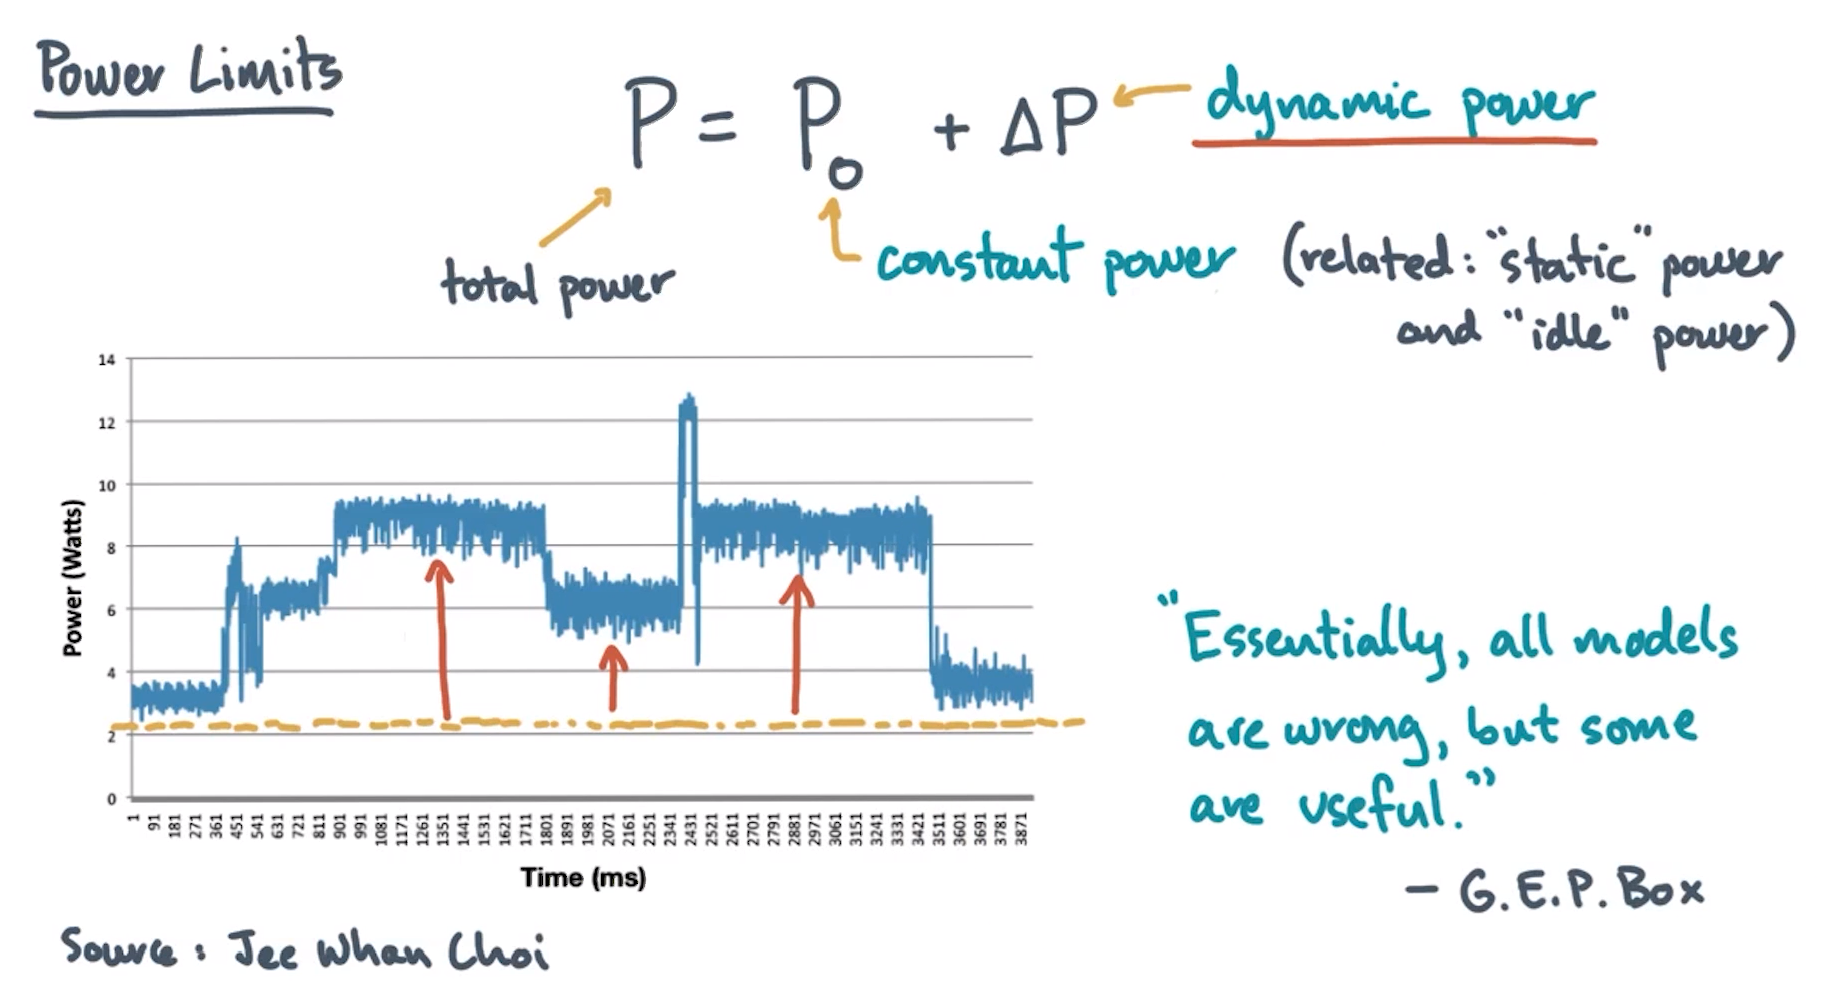 Power Limits
P = P₀ + ΔP
dynamic power
total power
constant power
(related: "static" power
and "idle" power)
14
12
10
8
6
4
2
0
Power (Watts)
1 91 181 271 361 451 541 631 721 811 901 991 1081 1171 1261 1351 1441 1531 1621 1711 1801 1891 1981 2071 2161 2251 2341 2431 2521 2611 2701 2791 2881 2971 3061 3151 3241 3331 3421 3511 3601 3691 3781 3871
Time (ms)
"Essentially, all models
are wrong, but some
are useful."
— G.E.P. Box
Source: Jee Whan Choi